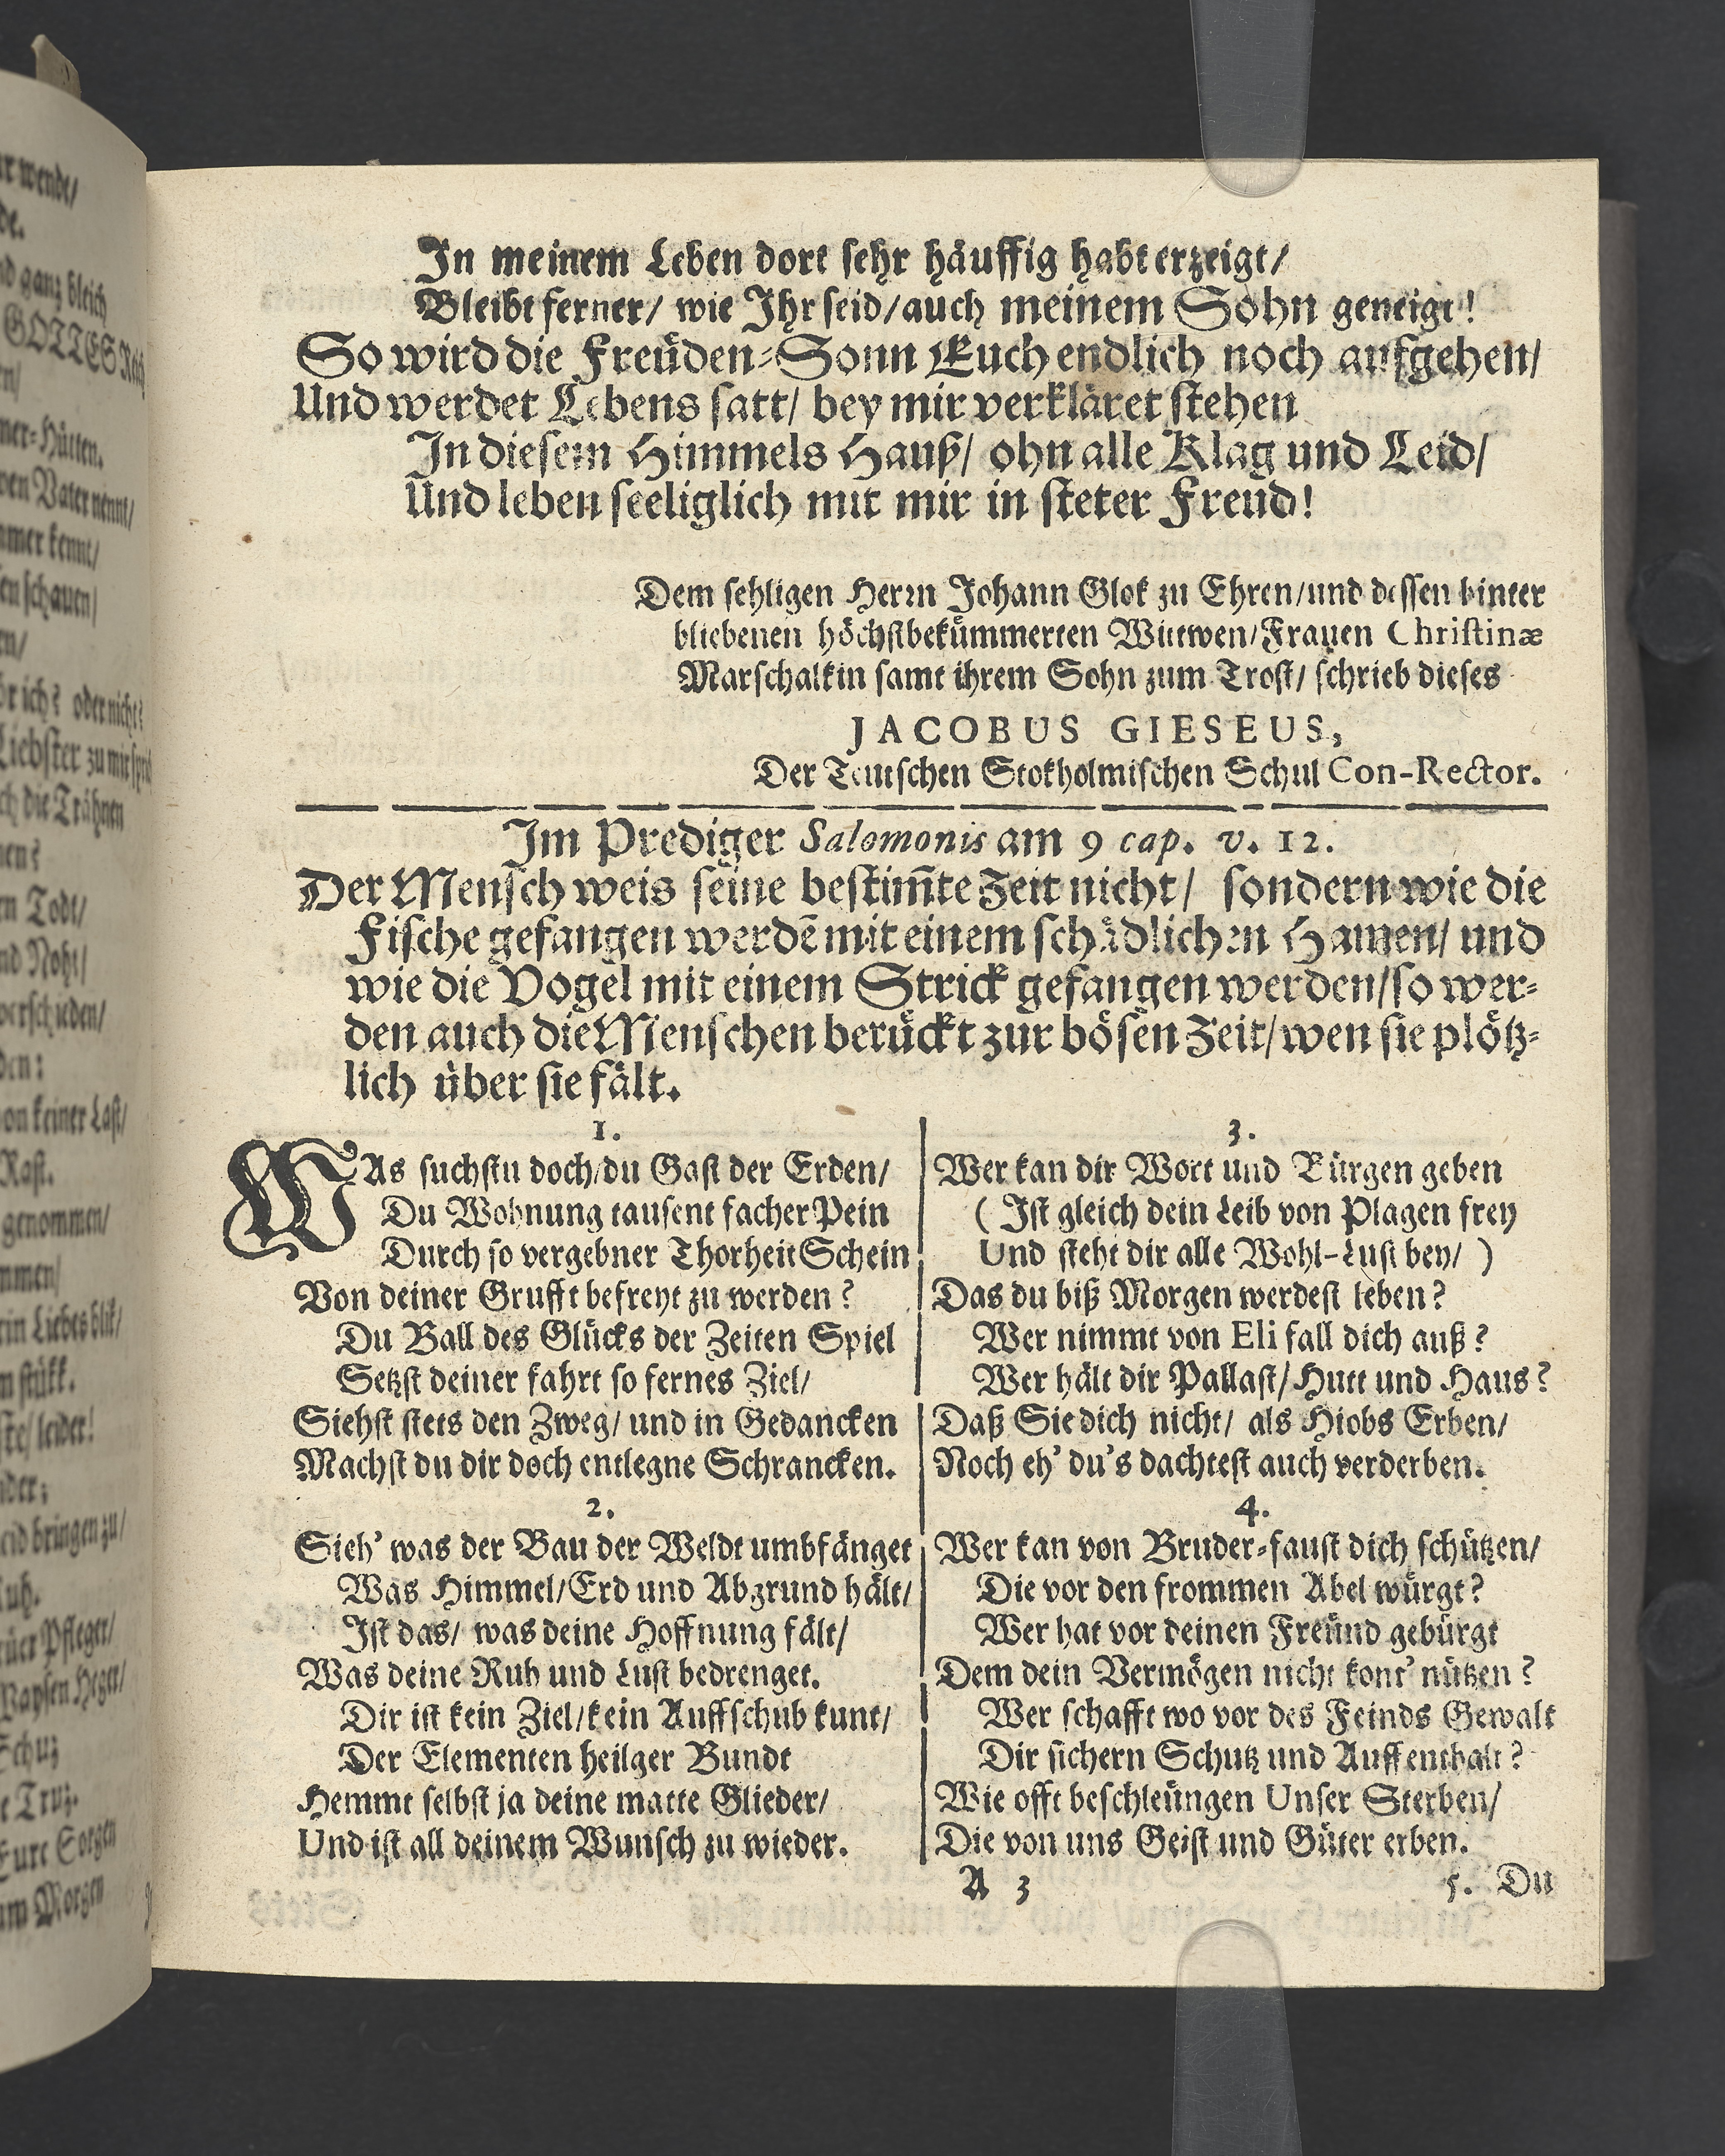 In meinem Leben dort sehr häuffig habt erzeigt/
Bleibt ferner/ wie Ihr seid/auch meinem Sohn geneigt!
So wird die Freüden-Sonn Euch endlich noch aufgehen/
Und werdet Lebens satt/ bey mir verkläret stehen
In diesem Himmels Hauß/ ohn alle Klag und Leid/
Und leben seeliglich mit mir in steter Freud!
Dem sehligen Herrn Johann Glok zu Ehren/und dessen hinter
bliebenen höchstbekümmerten Wittwen/Frauen Christinæ
Marschalkin samt ihrem Sohn zum Trost/ schrieb dieses
JACOBUS GIESEUS,
Der Teutschen Stokholmischen Schul Con-Rector.
Im Prediger Salomonis am 9 cap. v. 12.
Der Mensch weis seine bestim̃te Zeit nicht/ sondern wie die
Fische gefangen werdẽ mit einem schädlichen Hamen/ und
wie die Vogel mit einem Strick gefangen werden/so wer-
den auch die Menschen berückt zur bösen Zeit/wen sie plötz-
lich über sie fält.
1.
WAs suchstu doch/du Gast der Erden/
Du Wohnung tausent facher Pein
Durch so vergebner Thorheit Schein
Von deiner Grufft befreyt zu werden?
Du Ball des Glücks der Zeiten Spiel
Setzst deiner fahrt so fernes Ziel/
Siehst stets den Zweg/ und in Gedancken
Machst du dir doch entlegne Schrancken.
2.
Sieh' was der Bau der Weldt umbfänget
Was Himmel/Erd und Abgrund hält/
Ist das/ was deine Hoffnung fält/
Was deine Ruh und Lust bedrenget.
Dir ist kein Ziel/kein Auffschub kunt/
Der Elementen heilger Bundt
Hemmt selbst ja deine matte Glieder/
Und ist all deinem Wunsch zu wieder.
3.
Wer kan dir Wort und Bürgen geben
( Ist gleich dein Leib von Plagen frey
Und steht dir alle Wohl-Lust bey/ )
Das du biß Morgen werdest leben?
Wer nimmt von Eli fall dich auß?
Wer hält dir Pallast/Hutt und Haus?
Daß Sie dich nicht/ als Hiobs Erben/
Noch eh' du's dachtest auch verderben.
4.
Wer kan von Bruder-faust dich schützen/
Die vor den frommen Abel würgt?
Wer hat vor deinen Freünd gebürgt
Dem dein Vermögen nicht kont' nützen?
Wer schafft wo vor des Feinds Gewalt
Dir sichern Schutz und Auffenthalt?
Wie offt beschleüngen Unser Sterben/
Die von uns Geist und Güter erben.
A 3
5. Du